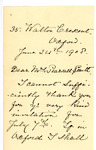 35, Walton Crescent,
Oxford
June 24th 1908.
Dear Mrs Pearsall Smith
I cannot suffi-
ciently thank you
for yr very kind
invitation for
July 7th
Oxford I shall